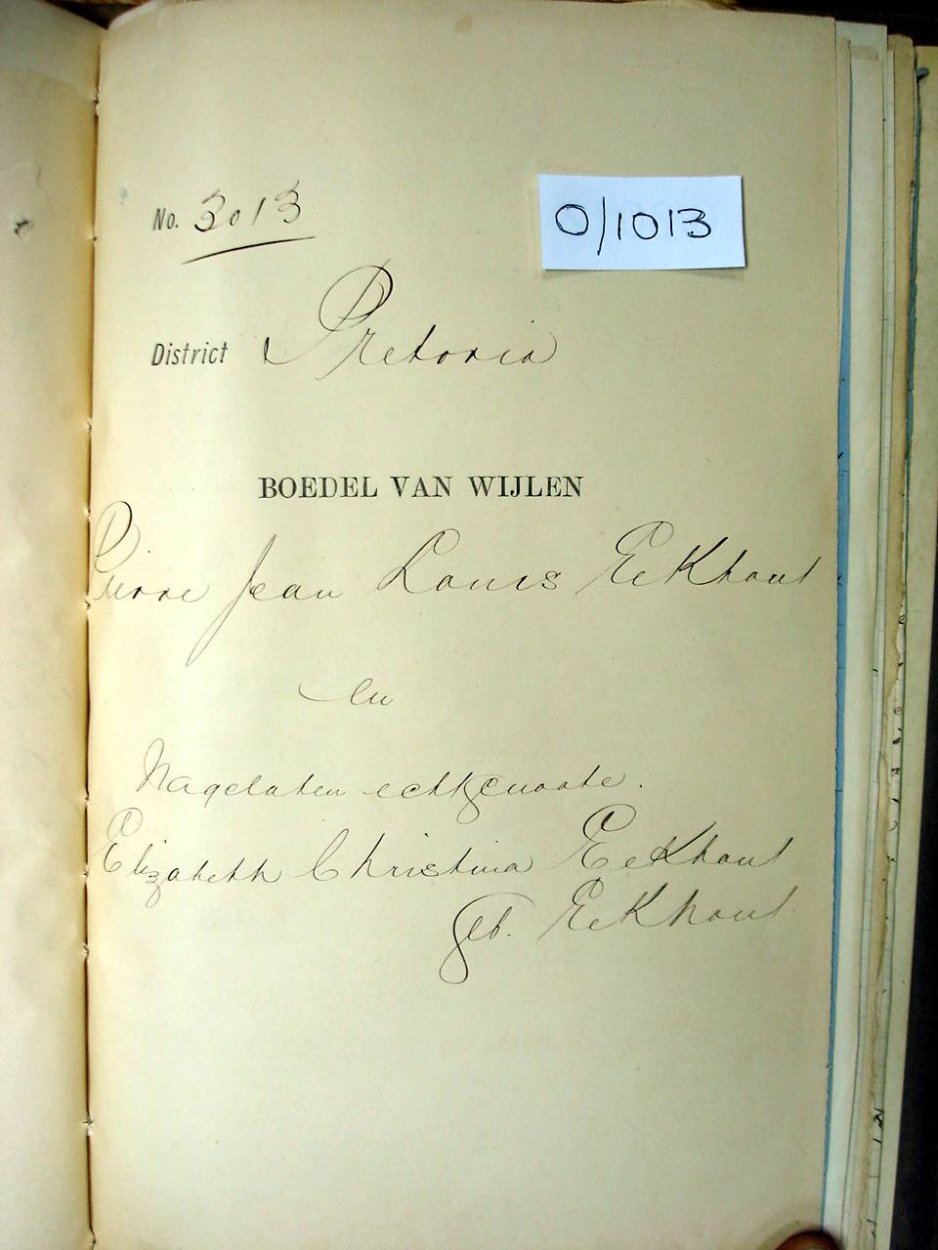 No. 3013
O/1013
District Pretoria
BOEDEL VAN WIJLEN
Pierre Jean Louis Eekhout
en
Nagelaten echtgenoote.
Elizabeth Christina Eekhout
geb. Eekhout